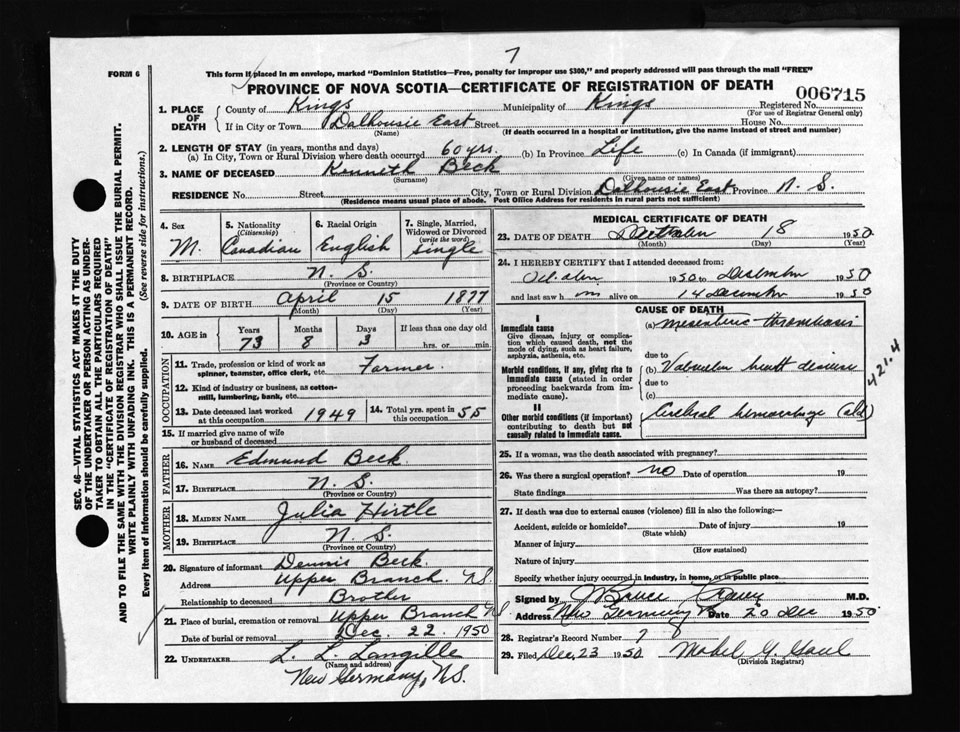 7
FORM 6
This form if placed in an envelope, marked "Dominion Statistics—Free, penalty for improper use $300," and properly addressed will pass through the mail "FREE"
PROVINCE OF NOVA SCOTIA—CERTIFICATE OF REGISTRATION OF DEATH
006715
1. PLACE OF DEATH County of Kings Municipality of Kings Registered No.
(For use of Registrar General only)
If in City or Town Dalhousie East Street House No.
(Name) (If death occurred in a hospital or institution, give the name instead of street and number)
2. LENGTH OF STAY (in years, months and days)
(a) In City, Town or Rural Division where death occurred 60 yrs. (b) In Province Life (c) In Canada (if immigrant)
3. NAME OF DECEASED Kenneth Beck
(Surname) (Given name or names)
RESIDENCE No. Street City, Town or Rural Division Dalhousie East Province N. S.
(Residence means usual place of abode. Post Office Address for residents in rural parts not sufficient)
4. Sex M.
5. Nationality (Citizenship) Canadian
6. Racial Origin English
7. Single, Married, Widowed or Divorced (write the word) Single
8. BIRTHPLACE N. S.
(Province or Country)
9. DATE OF BIRTH April 15 1877
(Month) (Day) (Year)
10. AGE in Years Months Days If less than one day old
73 8 3 hrs. or min.
OCCUPATION
11. Trade, profession or kind of work as spinner, teamster, office clerk, etc. Farmer.
12. Kind of industry or business, as cotton-mill, lumbering, bank, etc.
13. Date deceased last worked at this occupation 1949 14. Total yrs. spent in this occupation 55
15. If married give name of wife or husband of deceased
FATHER
16. NAME Edmund Beck
17. BIRTHPLACE N. S.
(Province or Country)
MOTHER
18. MAIDEN NAME Julia Hirtle
19. BIRTHPLACE N. S.
(Province or Country)
20. Signature of informant Dennis Beck.
Address Upper Branch. N.S.
Relationship to deceased Brother
21. Place of burial, cremation or removal Upper Branch N.S.
Date of burial or removal Dec. 22. 1950
22. UNDERTAKER L. L. Langille
(Name and address)
New Germany, N.S.
MEDICAL CERTIFICATE OF DEATH
23. DATE OF DEATH December 18 1950
(Month) (Day) (Year)
24. I HEREBY CERTIFY that I attended deceased from:
October 1950 to December 1950
and last saw him alive on 14 December 1950
CAUSE OF DEATH
I
Immediate cause
Give disease, injury or complication which caused death, not the mode of dying, such as heart failure, asphyxia, asthenia, etc.
(a) Mesenteric thrombosis
due to
Morbid conditions, if any, giving rise to immediate cause (stated in order proceeding backwards from immediate).
(b) Valvular heart disease
due to
(c)
II
Other morbid conditions (if important) contributing to death but not causally related to immediate cause.
Cerebral hemorrhage (old)
421.4
25. If a woman, was the death associated with pregnancy?
26. Was there a surgical operation? no Date of operation 19
State findings Was there an autopsy?
27. If death was due to external causes (violence) fill in also the following:—
Accident, suicide or homicide? Date of injury 19
(State which)
Manner of injury
(How sustained)
Nature of injury
Specify whether injury occurred in industry, in home, or in public place
Signed by M.D.
Address New Germany Date 20 Dec 1950
28. Registrar's Record Number 7
29. Filed Dec. 23 1950 Mabel G. Gaul
(Division Registrar)
SEC. 46—VITAL STATISTICS ACT MAKES IT THE DUTY
OF THE UNDERTAKER OR PERSON ACTING AS UNDER-
TAKER TO OBTAIN ALL THE PARTICULARS REQUIRED
IN THE "CERTIFICATE OF REGISTRATION OF DEATH"
AND TO FILE THE SAME WITH THE DIVISION REGISTRAR WHO SHALL ISSUE THE BURIAL PERMIT.
WRITE PLAINLY WITH UNFADING INK. THIS IS A PERMANENT RECORD.
Every item of information should be carefully supplied. (See reverse side for instructions.)